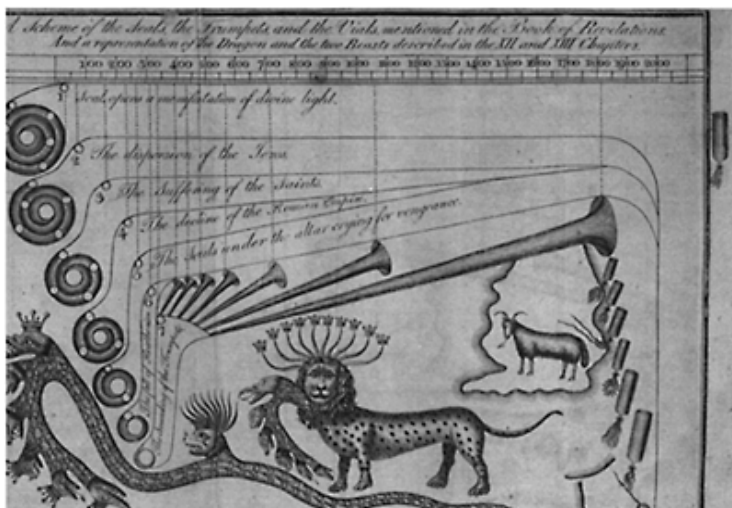 A Scheme of the Seals, the Trumpets, and the Vials, mentioned in the Book of Revelations,
And a representation of the Dragon and the two Beasts described in the XII and XIII Chapters.
100 200 300 400 500 600 700 800 900 1000 1100 1200 1300 1400 1500 1600 1700 1800 1900 2000
1 Seal opens a manifstation of divine light.
2 The dispersion of the Jews.
3 The Suffering of the Saints.
4 The decline of the Roman Empire.
5 The Souls under the altar crying for vengeance.